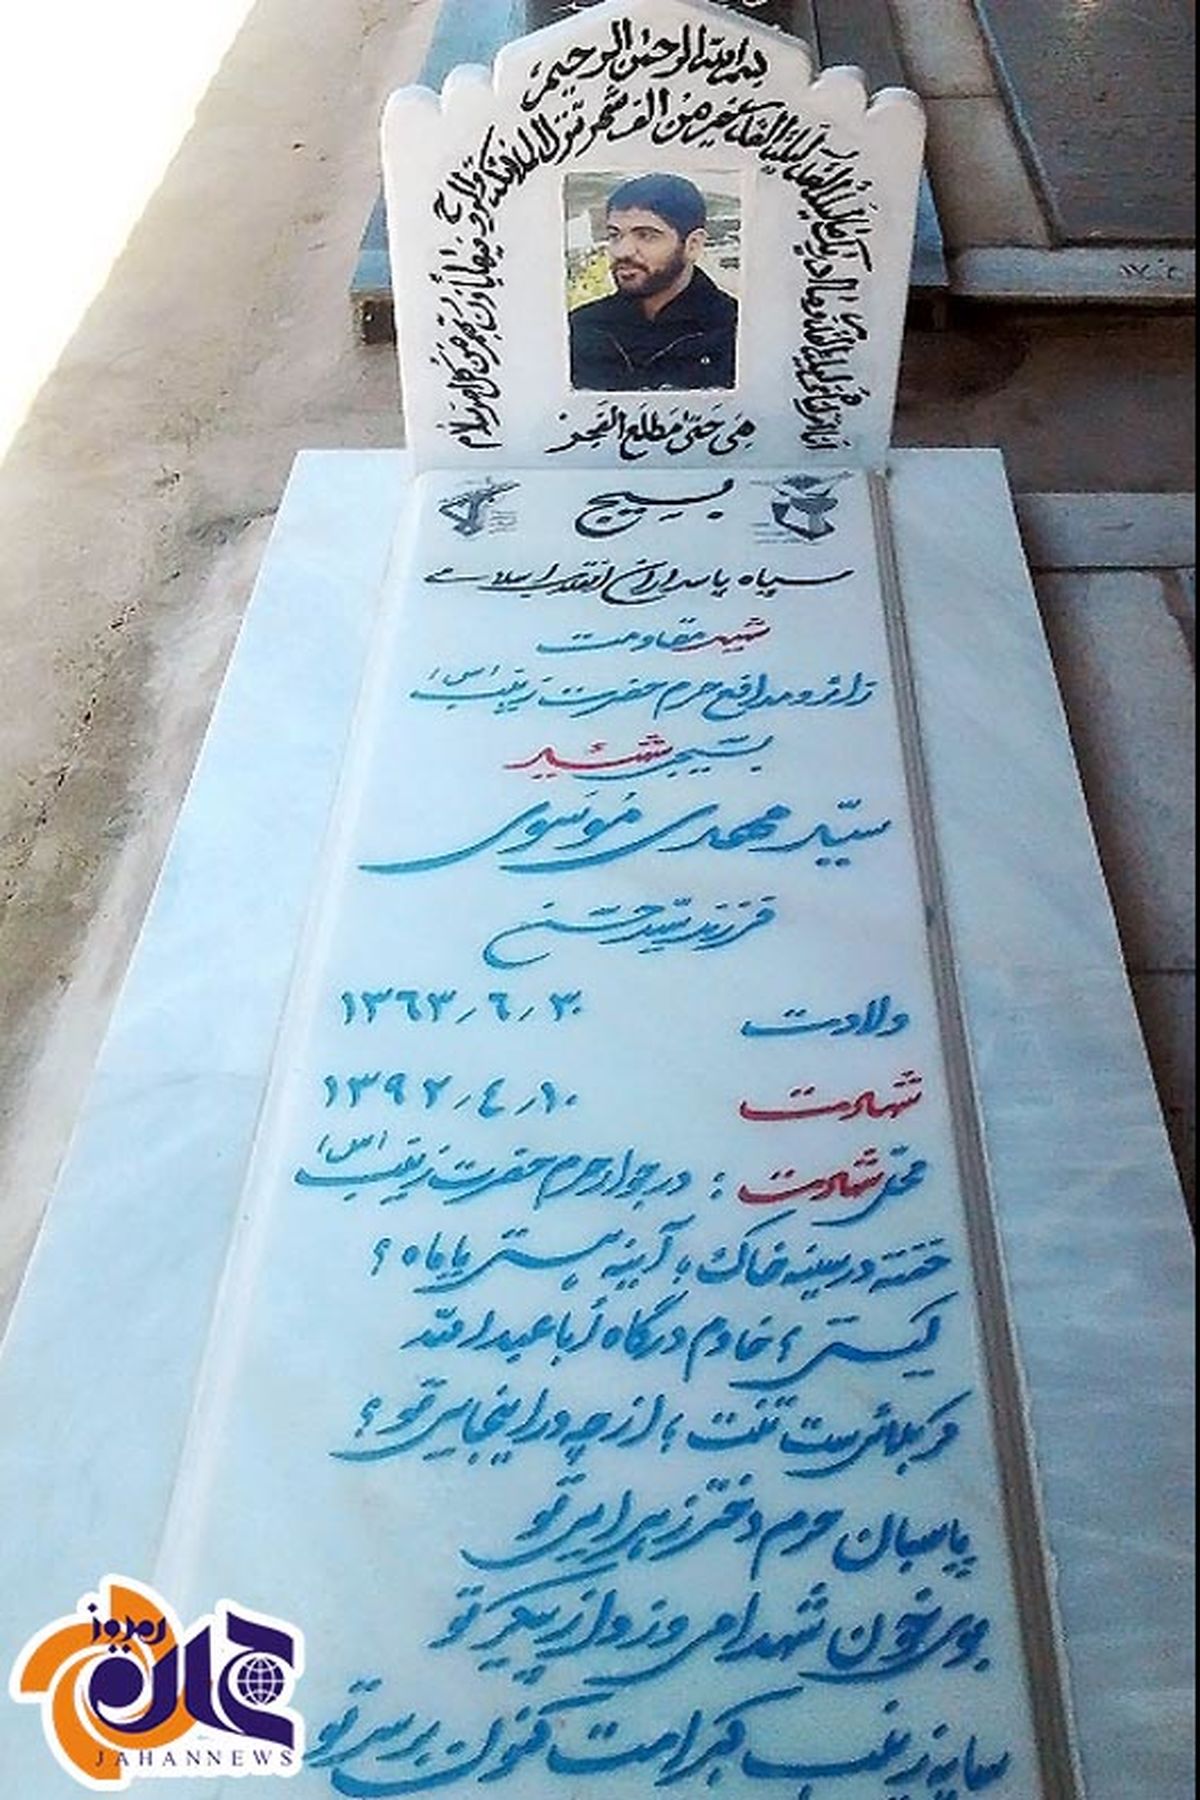 بسم الله الرحمن الرحیم
انا انزلناه فی لیلة القدر و ما ادریک ما لیلة القدر لیلة القدر خیر من الف شهر تنزل الملائکة والروح فیها باذن ربهم من کل امر سلام
هی حتی مطلع الفجر
بسیج
سپاه پاسداران انقلاب اسلامی
شهید مقاومت
زائر و مدافع حرم حضرت زینب (س)
بسیجی شهید
سیّد مهدی موسوی
فرزند سید حسن
ولادت ۱۳۶۳٫۶٫۳۰
شهادت ۱۳۹۲٫۴٫۱۰
محل شهادت : در جوار حرم حضرت زینب (س)
خفته در سینه خاک یا آینه هستی یا ماه ؟
کیستی ؟ خادم درگاه أباعبدالله
کربلائی ست تنت ؛ از چه در اینجایی تو ؟
پاسبان حرم دختر زهرایی تو
بوی خون شهدا می وزد از پیکر تو
سایه زینب کبراست کنون بر سر تو
جهان امروز
JAHANNEWS